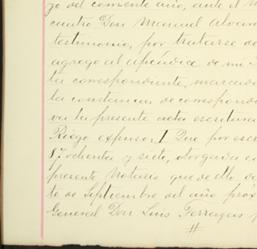 go del corriente año, ante el N
cuatro Don Manuel Alvar
testimonio, por tratarse de
agrego al apéndice de mi
la correspondiente, marcado
la constancia de correspond
va la presente acta escritura
Riego expuso: Que por escr
87 ochenta y siete, otorgada en
presente Notario que se dio de
te de Septiembre del año próx
General Don Luis Terrazas,
#